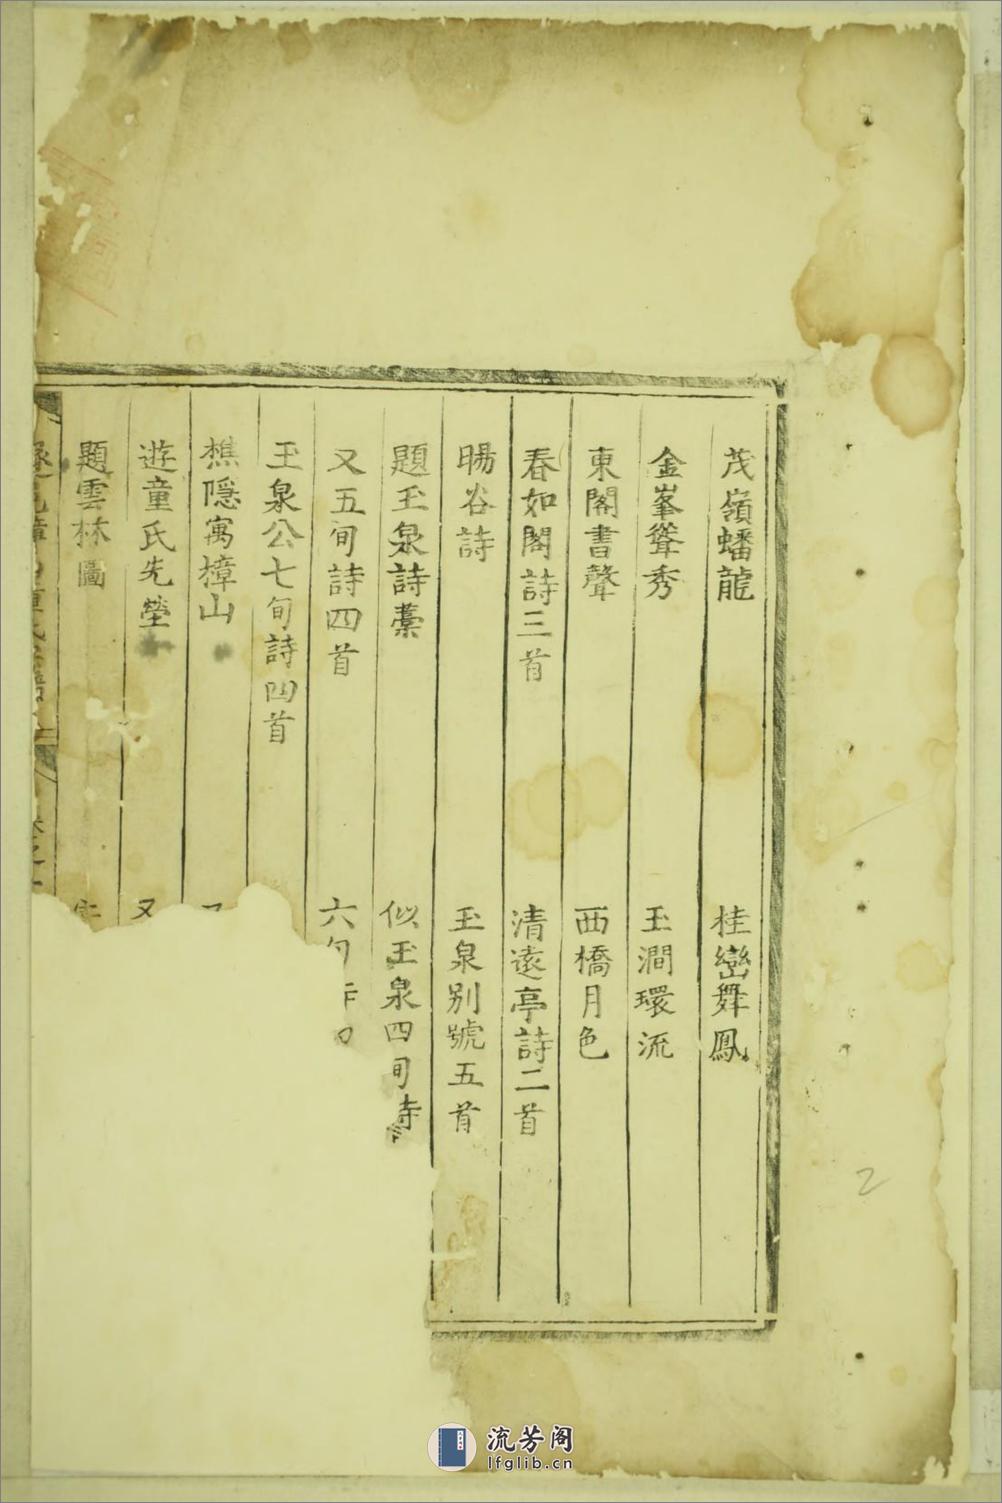 茂嶺蟠龍　桂巒舞鳳
金峯聳秀　玉澗環流
東閣書聲　西橋月色
春如閣詩三首　清遠亭詩二首
暘谷詩　玉泉别號五首
題玉泉詩藁　似玉泉四旬詩
又五旬詩四首　六
玉泉公七旬詩四首
樵隠寓樟山
遊童氏先塋　又
題雲林圖
流芳阁
lfglib.cn
2